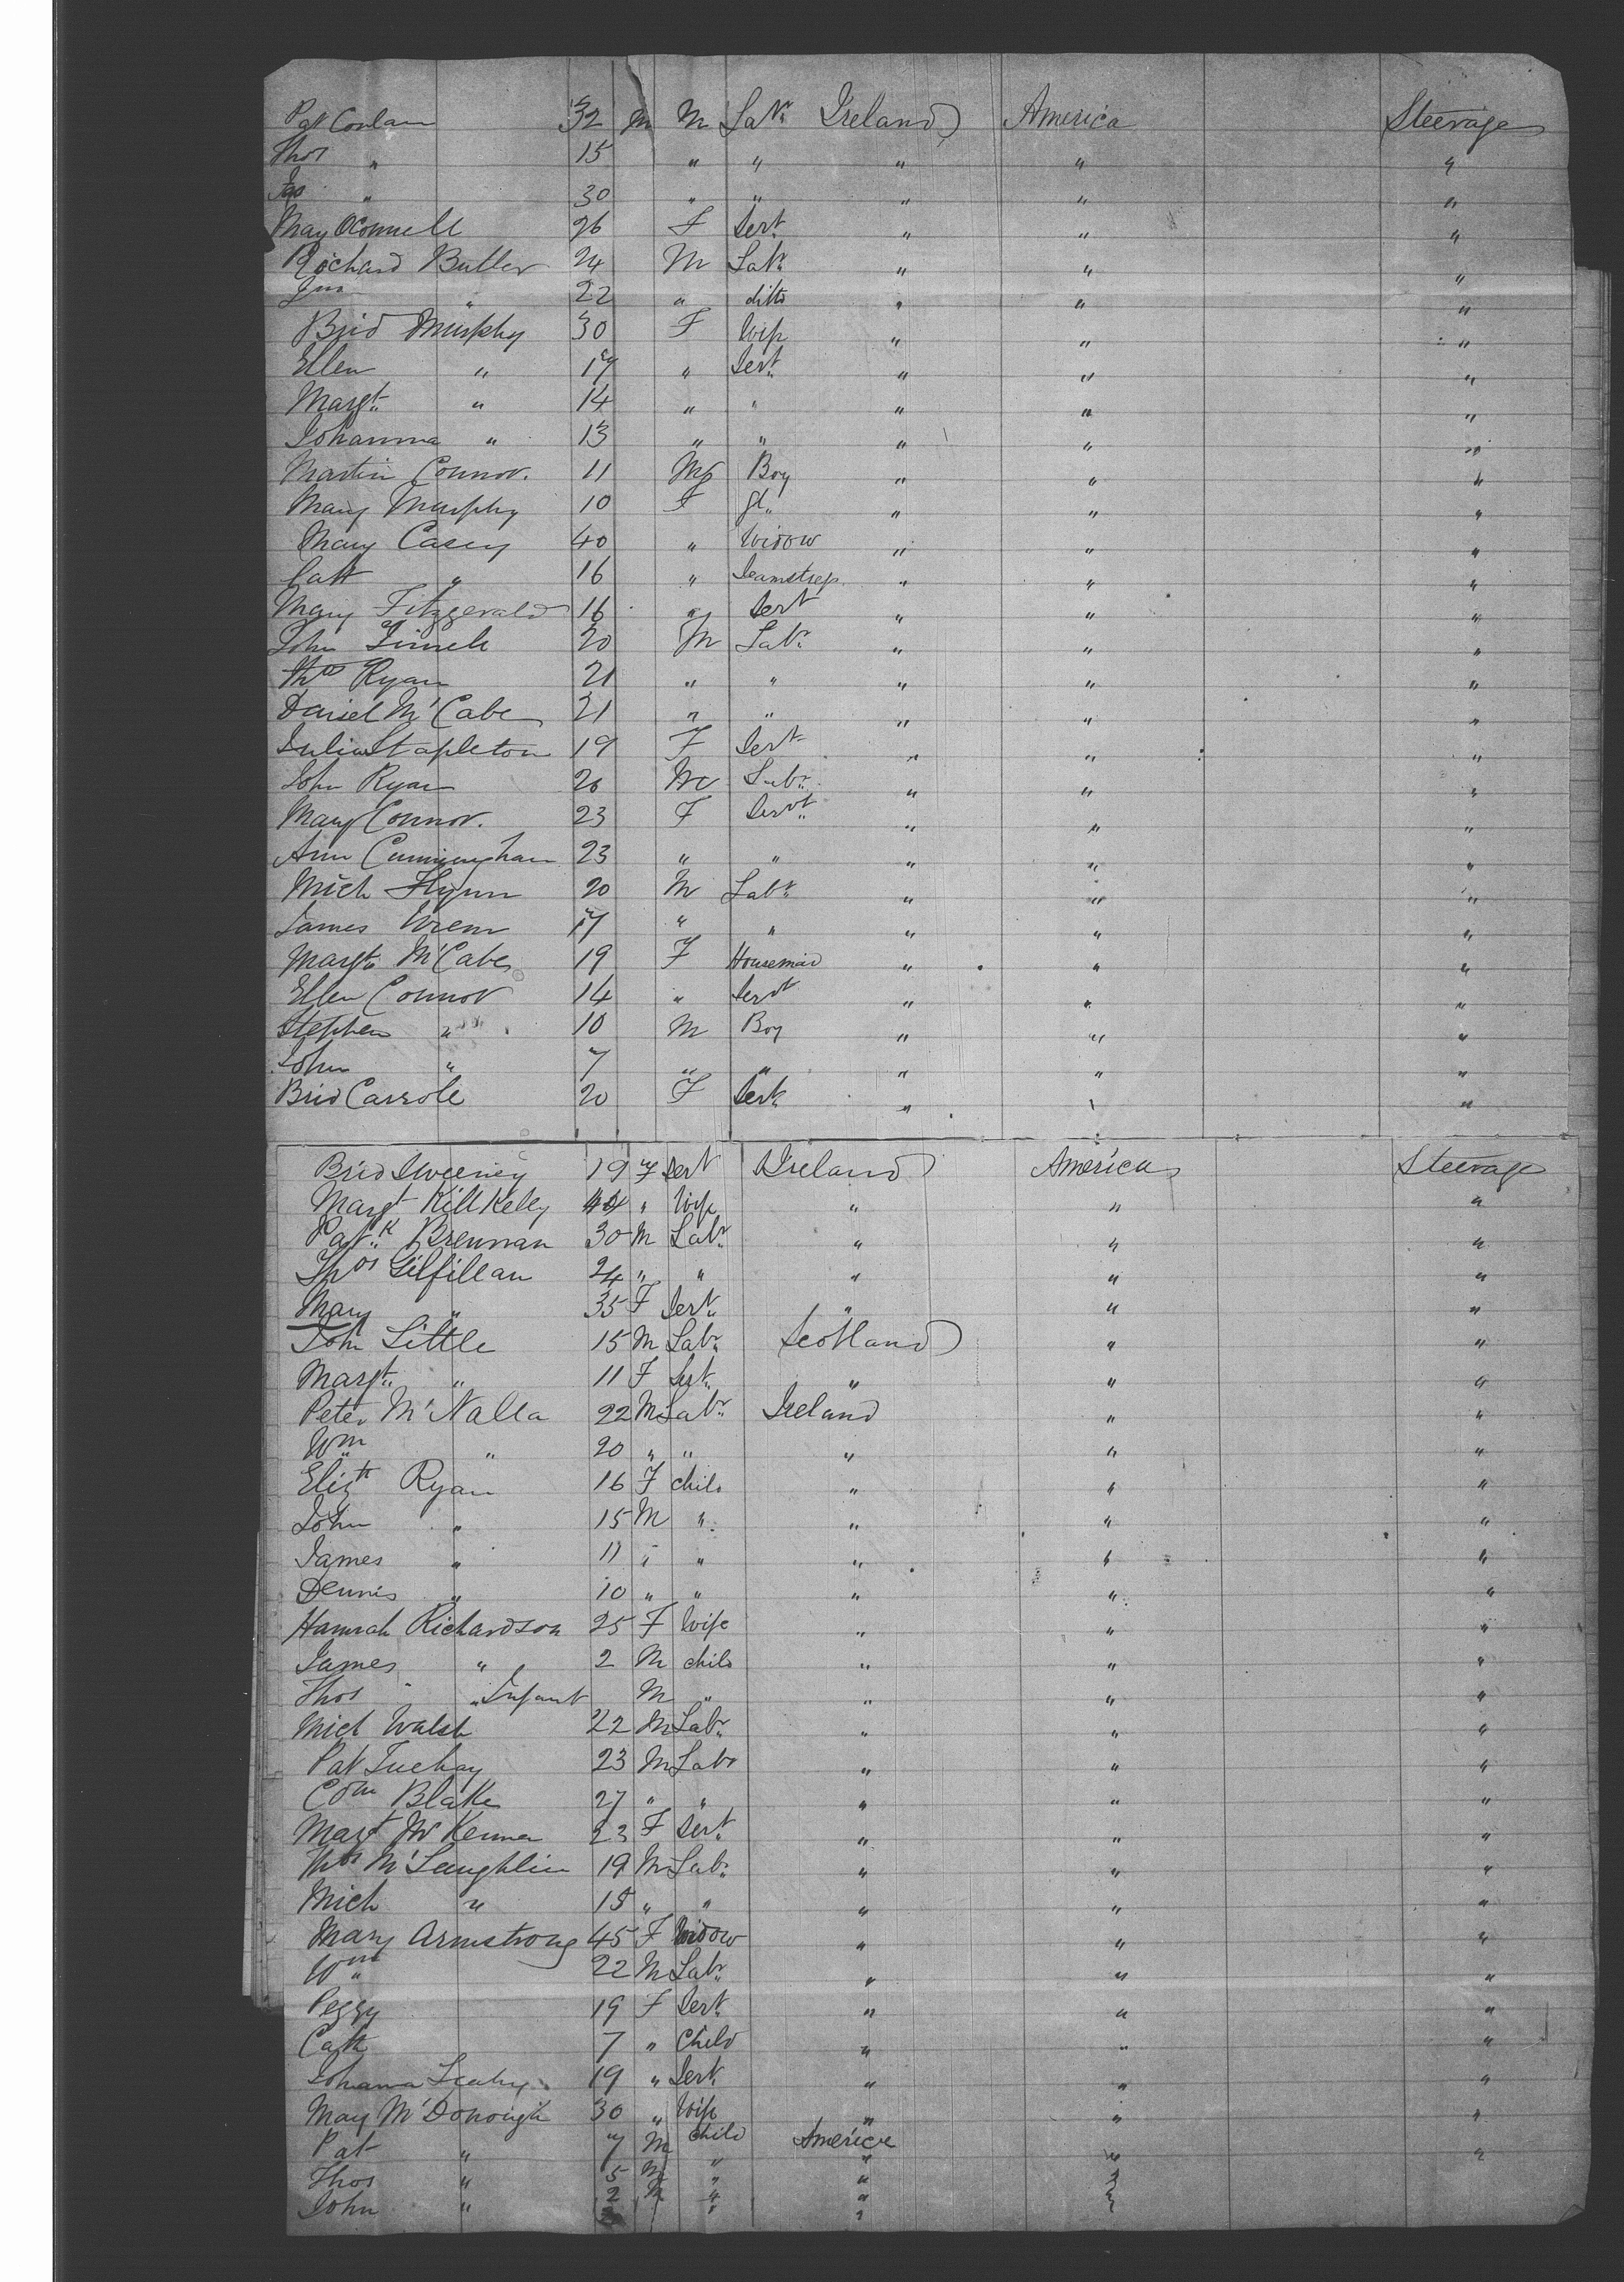 Pat Conlan 32 M M Labr Ireland America Steerage
Thos " 15 " " " " "
Jas " 30 " " " " "
May OConnell 26 F Sert " " "
Richard Butler 24 M Labr " " "
Jno " 22 " ditto " " "
Brid Murphy 30 F Wife " " "
Ellen " 17 " Sert " " "
Margt " 14 " " " " "
Johanna " 13 " " " " "
Martin Connor. 11 M Boy " " "
Mary Murphy 10 F gl " " "
Mary Casey 40 " Widow " " "
Cath " 16 " Seamstress " " "
Mary Fitzgerald 16 " Sert " " "
John 20 M Labr " " "
Thos Ryan 21 " " " " "
Daniel McCabe 21 " " " " "
Julia Stapleton 19 F Sert " " "
John Ryan 26 M Labr " " "
Mary Connor. 23 F Servt " " "
Ann Cunningham 23 " " " " "
Mich Flynn 20 M Labr " " "
James Wrenn 17 " " " " "
Margt McCabe 19 F Housemaid " " "
Ellen Connor 14 " Servt " " "
Stephen " 10 M Boy " " "
John " 7 " " " " "
Brid Carrole 20 F Sert " " "
Brid Sweeney 19 F Sert Ireland America Steerage
Margt Killkelly 44 " Wife " " "
Patk Brennan 30 M Labr " " "
Thos Gilfillan 24 " " " " "
Mary " 35 F Sert " " "
John Little 15 M Labr Scotland " "
Margt " 11 F Sert " " "
Peter McNalla 22 M Labr Ireland " "
Wm " 20 " " " " "
Elizth Ryan 16 F child " " "
John " 15 M " " " "
James " 11 " " " " "
Dennis " 10 " " " " "
Hannah Richardson 25 F Wife " " "
James " 2 M child " " "
Thos " Infant M " " " "
Mich Walsh 22 M Labr " " "
Pat Tuehay 23 M Labr " " "
Com Blake 27 " " " " "
Margt McKenna 23 F Sert " " "
Thos McLaughlin 19 M Labr " " "
Mich " 15 " " " " "
Mary Armstrong 45 F Widow " " "
Wm " 22 M Labr " " "
Peggy 19 F Sert " " "
Cath 7 " Child " " "
Johanna Leahy 19 " Sert " " "
May McDonough 30 " Wife " " "
Pat " 7 M child America " "
Thos " 5 M " " "
John " 2 M " " "